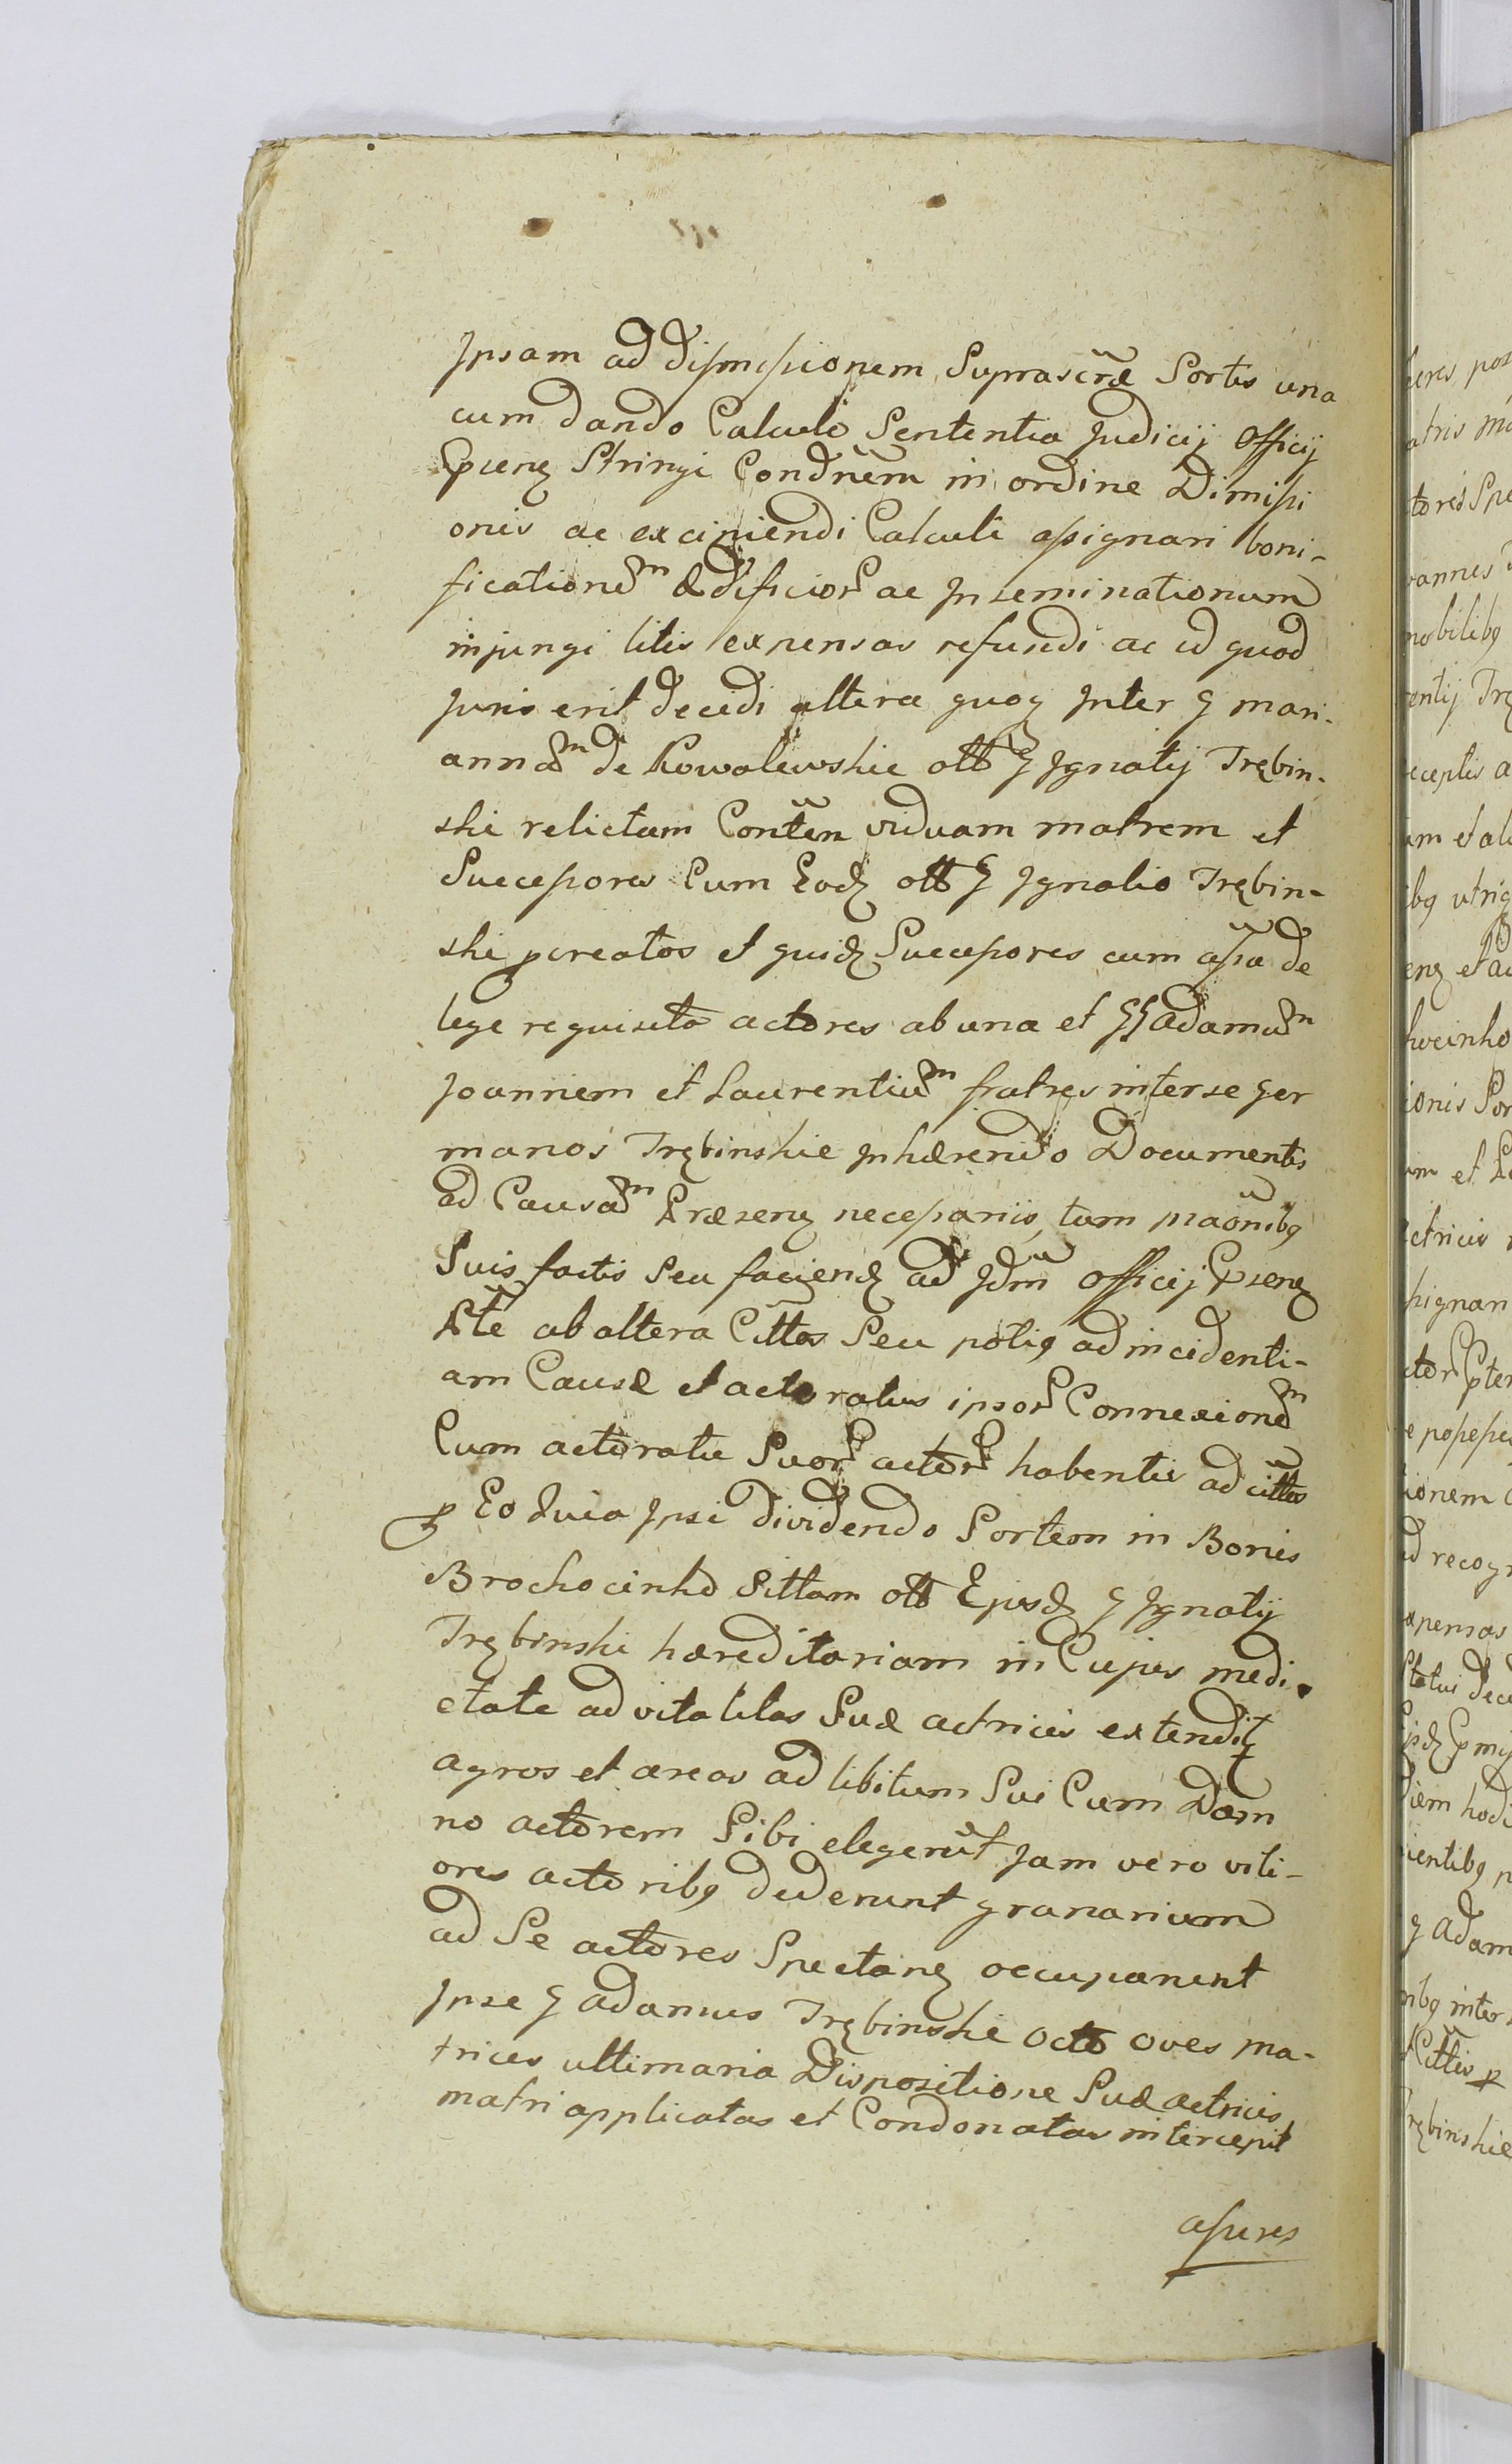 Ipsam ad dismissionem Suprascrae Sortis una
cum dando Calculo Sententia Judicij Officij
Ppsenz Stringi Condnem in ordine Dimissi
onis ac excipiendi Calculi assignari boni-
ficationem Ædificior ac Inseminationum
injungi litis expensas refundi ac id quod
Juris erit decidi altera quoq Inter G Mari-
annam de Kowalewskie olb G Ignatij Trębin-
ski relictam Conten viduam matrem et
Successores Cum Eodz olb G Ignatio Trębin-
ski pcreatos et quidz Successores cum assa de
lege requisita actores ab una et GG Adamum
Joannem et Laurentium fratres inter se ger
manos Trębinskie Inhærendo Documentis
ad Causam Præsenz necessariis, tum piaonibq
Suis factis Seu faciendz ad Idm Officij Ppsenz
Pte ab altera Cittos Seu potiq ad incidenti-
am Causæ et actoratus ipsor Connexionem
Cum actoratu Suor actor habentis ad cittos
p Eo Quia Ipsi dividendo Sortem in Bonis
Brochocinko Sittam olb Ejusdz G Ignatij
Trębinski hæreditariam in Cujus medi-
etate advitalitas Suæ actricis extendit
agros et areas ad libitum Sui Cum Dam
no actorem Sibi elegerut Jam vero vili-
ores actoribq dederunt granarium
ad Se actores Spectanz occuparunt
Ipse G Adamus Trębinskie octo oves ma-
trices ultimaria Dispositione Suæ actricis
matri applicatas et Condonatas intercepit
asseres